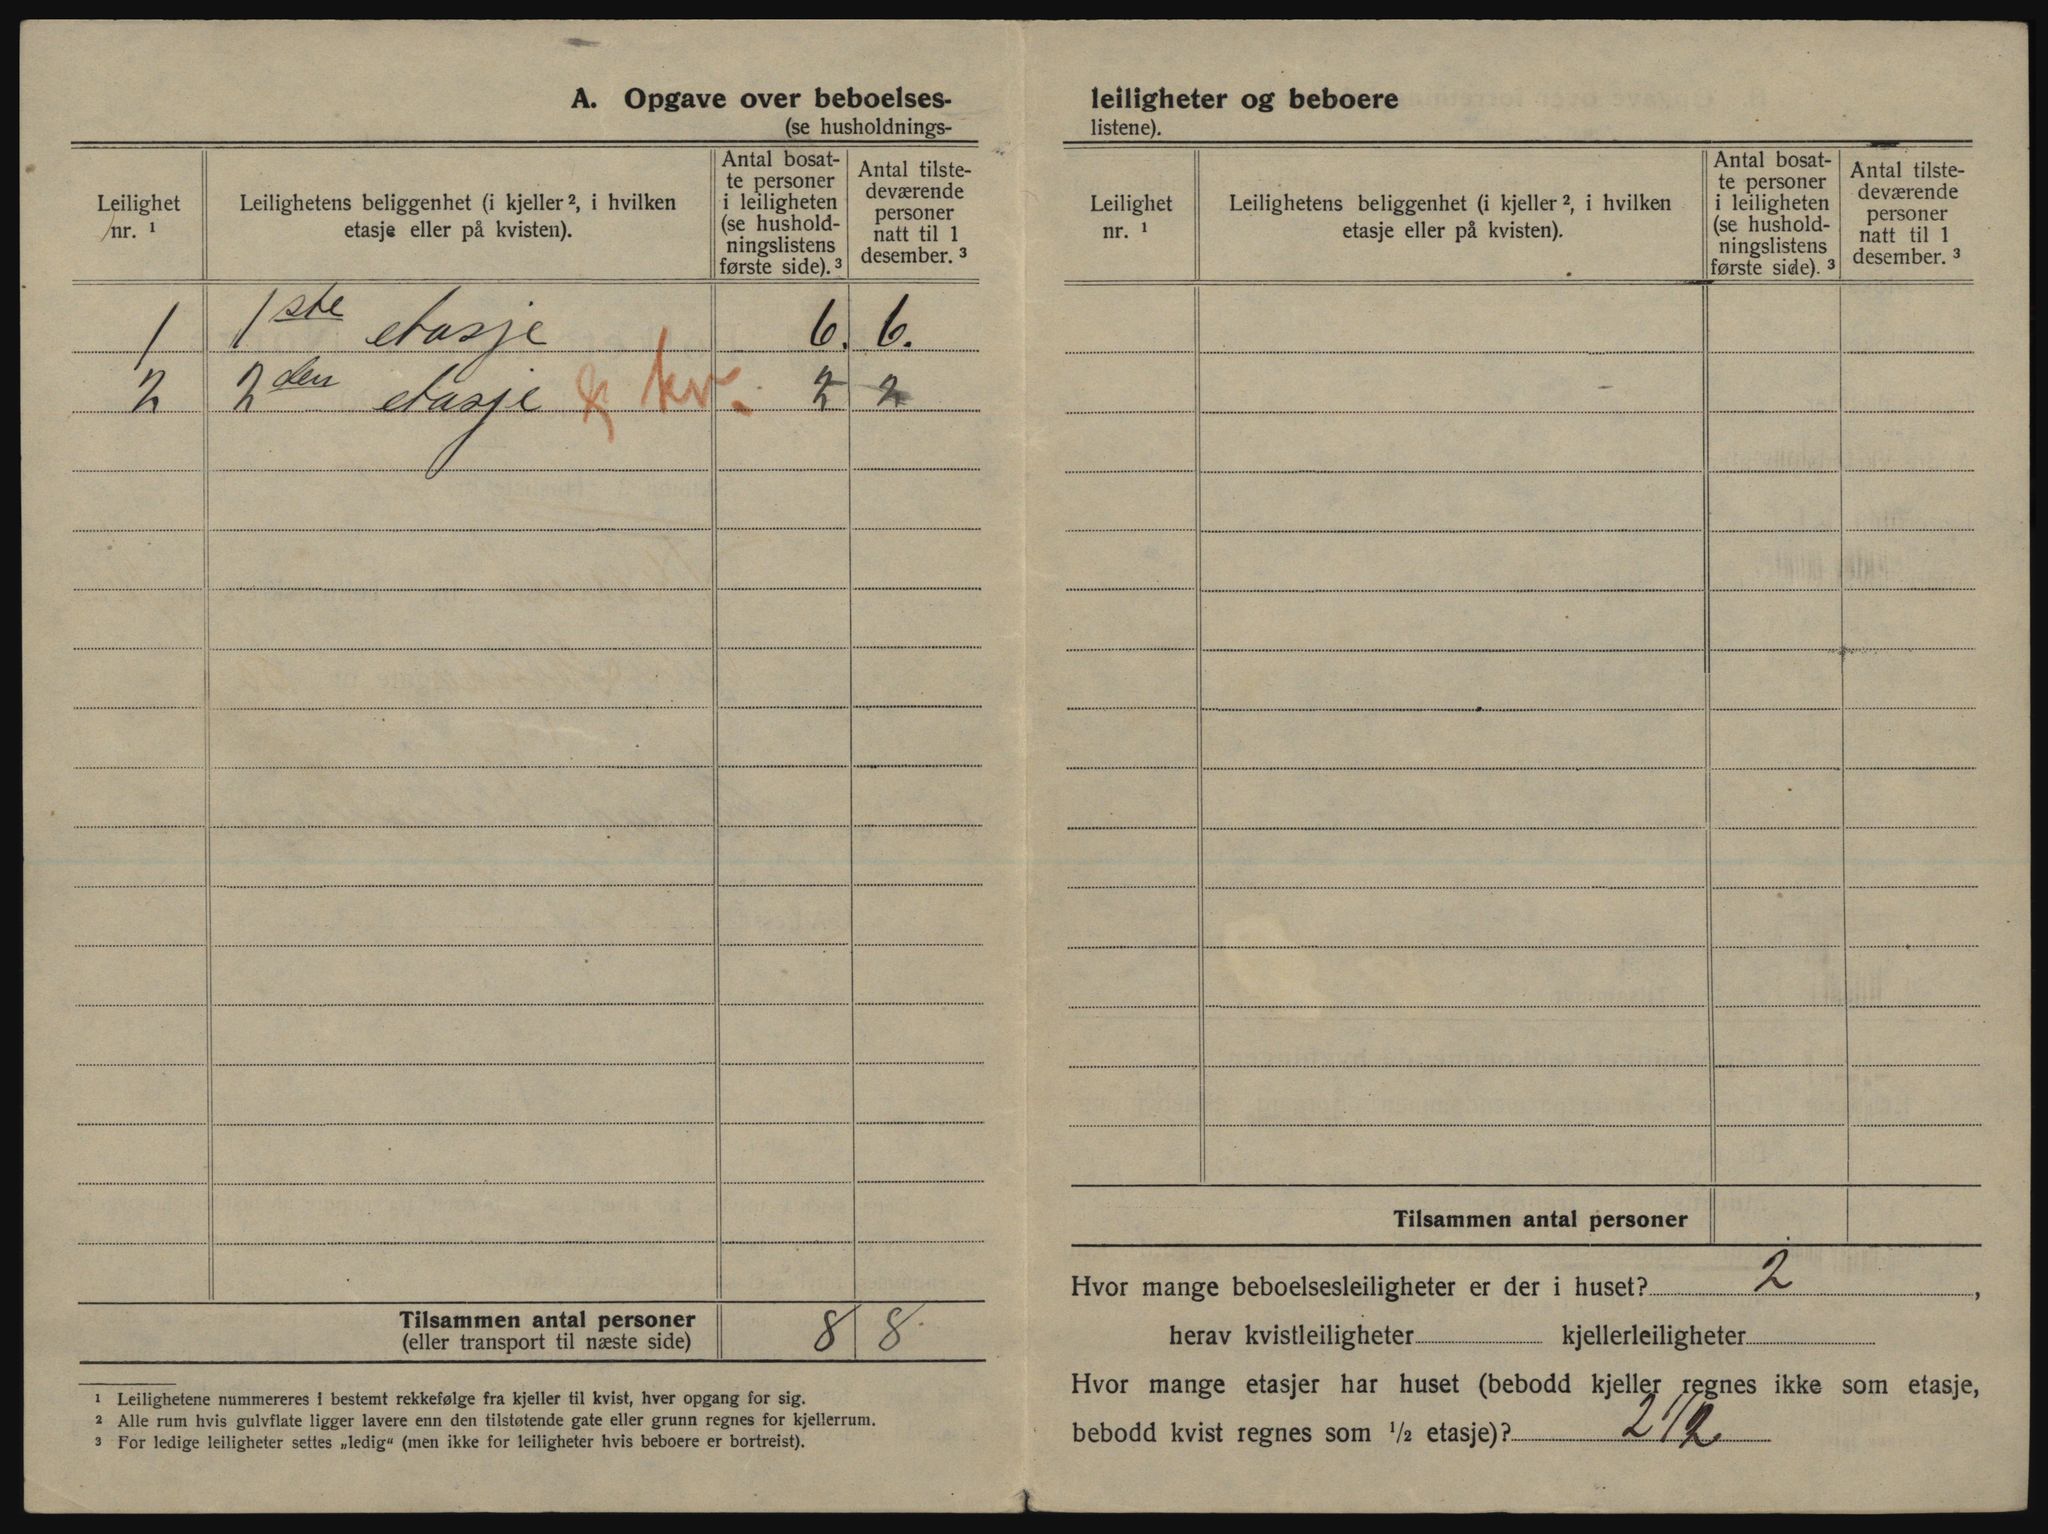 A. Opgave over beboelses-
(se husholdnings-
Leilighet
nr. ¹
Leilighetens beliggenhet (i kjeller ², i hvilken
etasje eller på kvisten).
Antal bosat-
te personer
i leiligheten
(se hushold-
ningslistens
første side). ³
Antal tilste-
deværende
personer
natt til 1
desember. ³
1 1ste etasje 6. 6.
2 2den etasje & kv. 2 2
Tilsammen antal personer 8 8
(eller transport til næste side)
¹ Leilighetene nummereres i bestemt rekkefølge fra kjeller til kvist, hver opgang for sig.
² Alle rum hvis gulvflate ligger lavere enn den tilstøtende gate eller grunn regnes for kjellerrum.
³ For ledige leiligheter settes „ledig“ (men ikke for leiligheter hvis beboere er bortreist).
leiligheter og beboere
listene).
Leilighet
nr. ¹
Leilighetens beliggenhet (i kjeller ², i hvilken
etasje eller på kvisten).
Antal bosat-
te personer
i leiligheten
(se hushold-
ningslistens
første side). ³
Antal tilste-
deværende
personer
natt til 1
desember. ³
Tilsammen antal personer
Hvor mange beboelsesleiligheter er der i huset? 2,
herav kvistleiligheter kjellerleiligheter
Hvor mange etasjer har huset (bebodd kjeller regnes ikke som etasje,
bebodd kvist regnes som ½ etasje)? 2 1/2